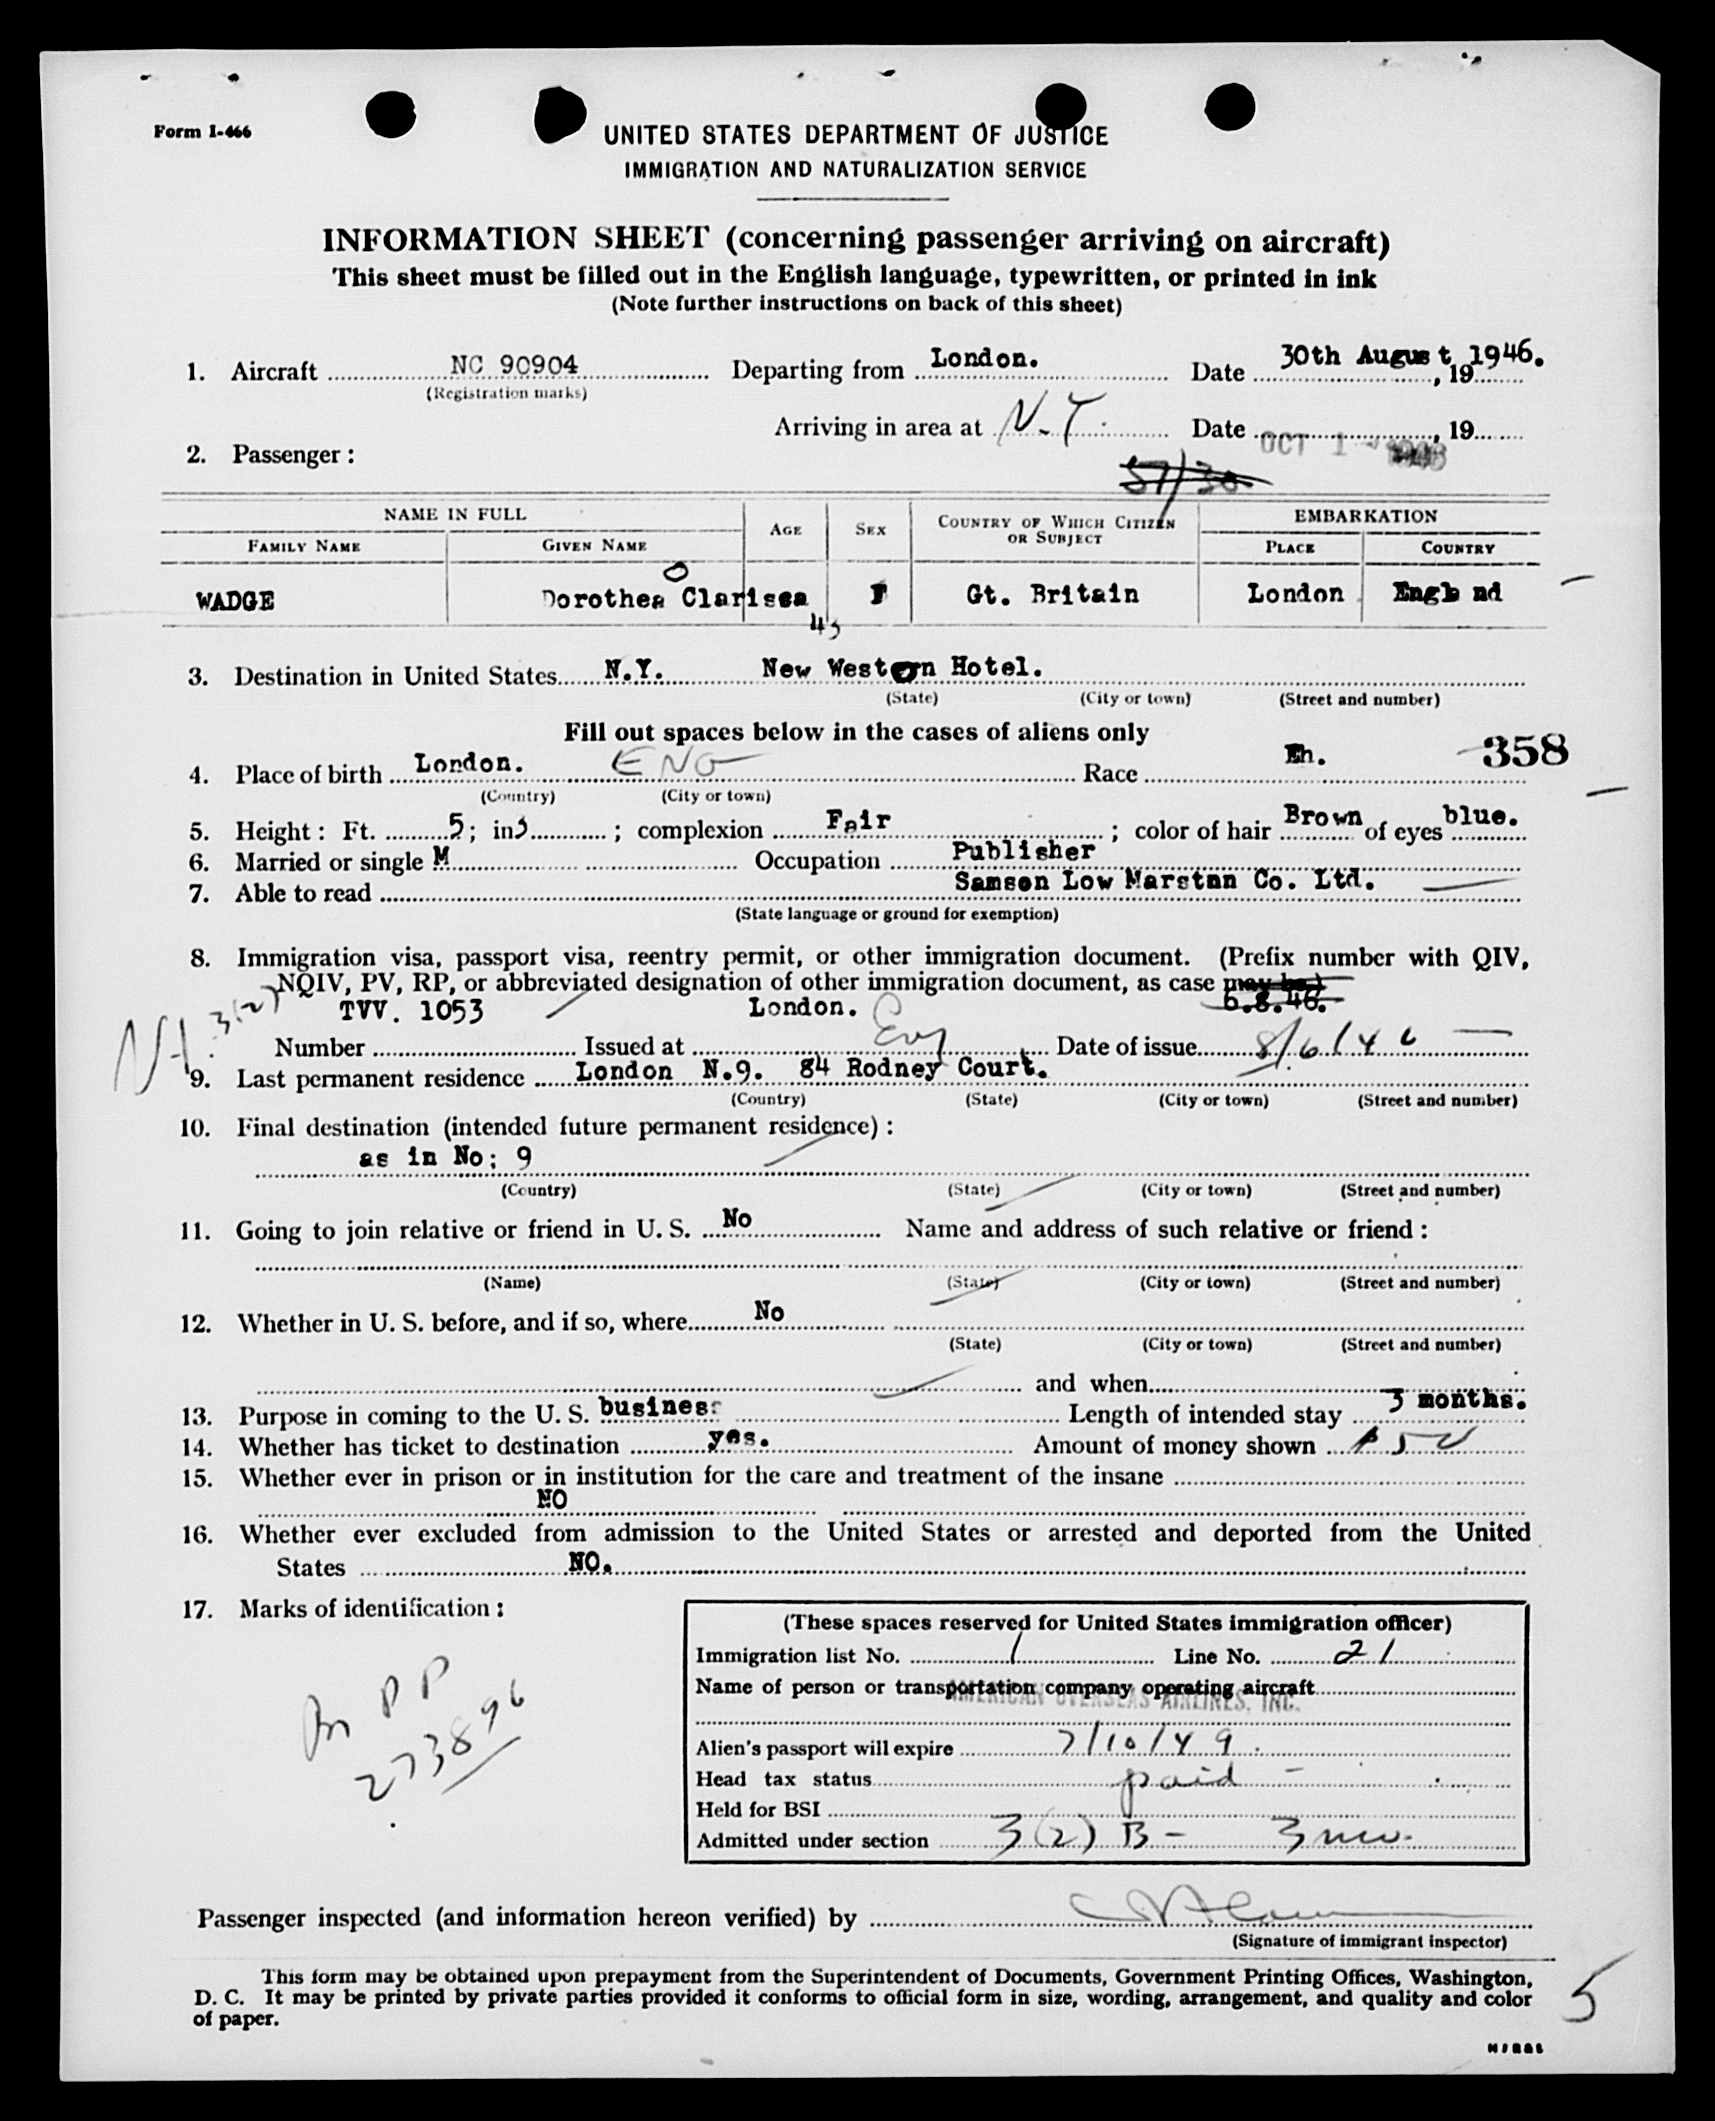 Form I-466
UNITED STATES DEPARTMENT OF JUSTICE
IMMIGRATION AND NATURALIZATION SERVICE
INFORMATION SHEET (concerning passenger arriving on aircraft)
This sheet must be filled out in the English language, typewritten, or printed in ink
(Note further instructions on back of this sheet)
1. Aircraft NC 90904 Departing from London. Date 30th August, 1946.
(Registration marks)
Arriving in area at N.Y. Date OCT 1 1946, 19
2. Passenger:
57/30
NAME IN FULL AGE SEX COUNTRY OF WHICH CITIZEN OR SUBJECT EMBARKATION
FAMILY NAME GIVEN NAME PLACE COUNTRY
WADGE Dorothea Clarissa F Gt. Britain London England
43
3. Destination in United States N.Y. New Western Hotel.
(State) (City or town) (Street and number)
Fill out spaces below in the cases of aliens only
358
4. Place of birth London. ENG Race Eh.
(Country) (City or town)
5. Height: Ft. 5; in 3; complexion Fair; color of hair Brown of eyes blue.
6. Married or single M Occupation Publisher
7. Able to read Samson Low Marstan Co. Ltd.
(State language or ground for exemption)
8. Immigration visa, passport visa, reentry permit, or other immigration document. (Prefix number with QIV,
NQIV, PV, RP, or abbreviated designation of other immigration document, as case may be.)
3(2) TVV. 1053 London. 6.8.46.
Number Issued at Eng Date of issue 8/6/46
9. Last permanent residence London N.9. 84 Rodney Court.
(Country) (State) (City or town) (Street and number)
10. Final destination (intended future permanent residence):
as in No: 9
(Country) (State) (City or town) (Street and number)
11. Going to join relative or friend in U. S. No Name and address of such relative or friend:
(Name) (State) (City or town) (Street and number)
12. Whether in U. S. before, and if so, where No
(State) (City or town) (Street and number)
and when
13. Purpose in coming to the U. S. business Length of intended stay 3 months.
14. Whether has ticket to destination yes. Amount of money shown $50
15. Whether ever in prison or in institution for the care and treatment of the insane
NO
16. Whether ever excluded from admission to the United States or arrested and deported from the United
States NO.
17. Marks of identification:
PP
273896
(These spaces reserved for United States immigration officer)
Immigration list No. 1 Line No. 21
Name of person or transportation company operating aircraft
AMERICAN OVERSEAS AIRLINES, INC.
Alien's passport will expire 7/10/49
Head tax status paid -
Held for BSI
Admitted under section 3(2) B - 3 mo.
Passenger inspected (and information hereon verified) by
(Signature of immigrant inspector)
This form may be obtained upon prepayment from the Superintendent of Documents, Government Printing Offices, Washington,
D. C. It may be printed by private parties provided it conforms to official form in size, wording, arrangement, and quality and color
of paper.
5